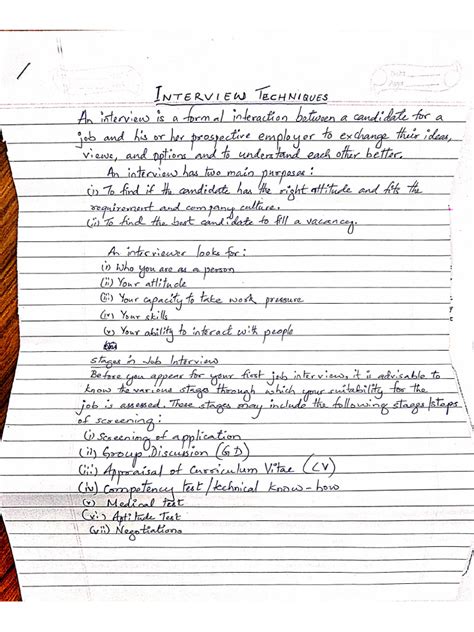 INTERVIEW TECHNIQUES
An interview is a formal interaction between a candidate for a
job and his or her prospective employer to exchange their ideas,
views, and options and to understand each other better.
An interview has two main purposes:
(i) To find if the candidate has the right attitude and fits the
requirement and company culture.
(ii) To find the best candidate to fill a vacancy.
An interviewer looks for:
(i) Who you are as a person
(ii) Your attitude
(iii) Your capacity to take work pressure
(iv) Your skills
(v) Your ability to interact with people
Stages in Job Interview
Before you appear for your first job interview, it is advisable to
know the various stage through which your suitability for the
job is assessed. These stages may include the following stages/steps
of screening:
(i) Screening of application
(ii) Group Discussion (GD)
(iii) Appraisal of Curriculum Vitae (CV)
(iv) Competency test/technical know-how
(v) Medical test
(vi) Aptitude Test
(vii) Negotiations